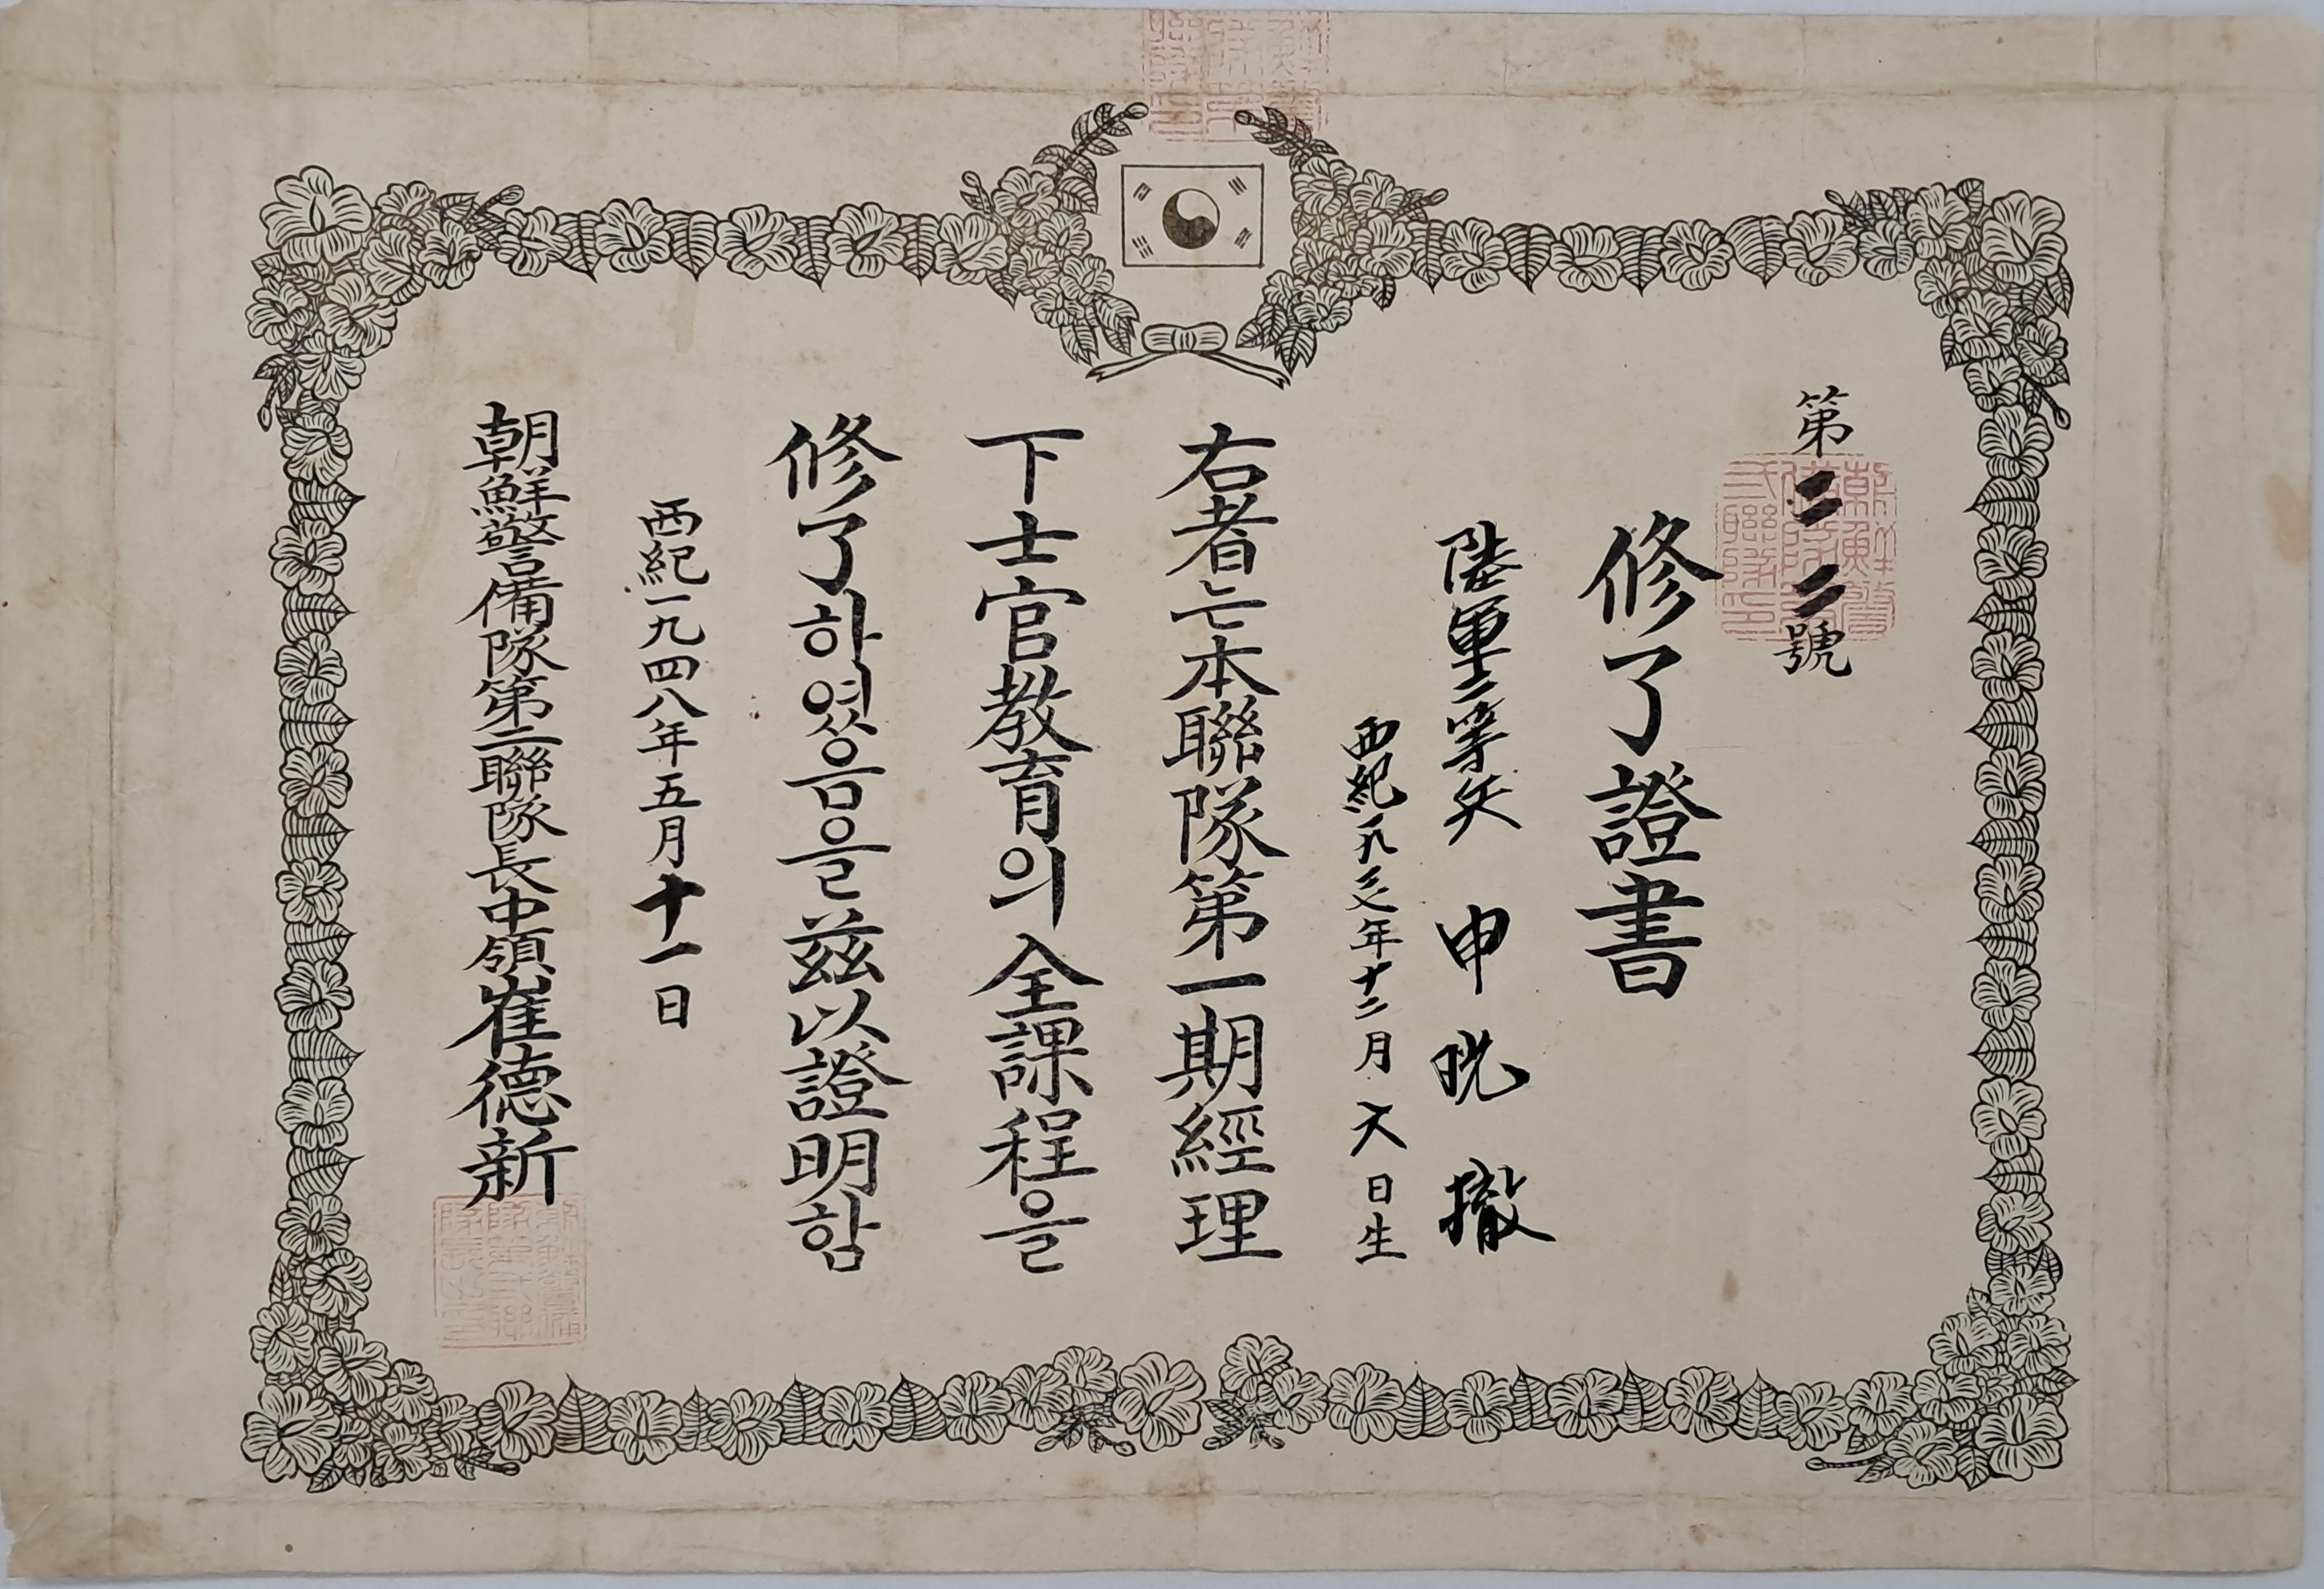 第二二號
修了證書
陸軍二等兵 申 晄 撤
西紀一九 年十二月 六日生
右者는本聯隊第一期經理
下士官教育의全課程을
修了하였음을玆以證明함
西紀一九四八年五月十一日
朝鮮警備隊第二聯隊長中領崔德新